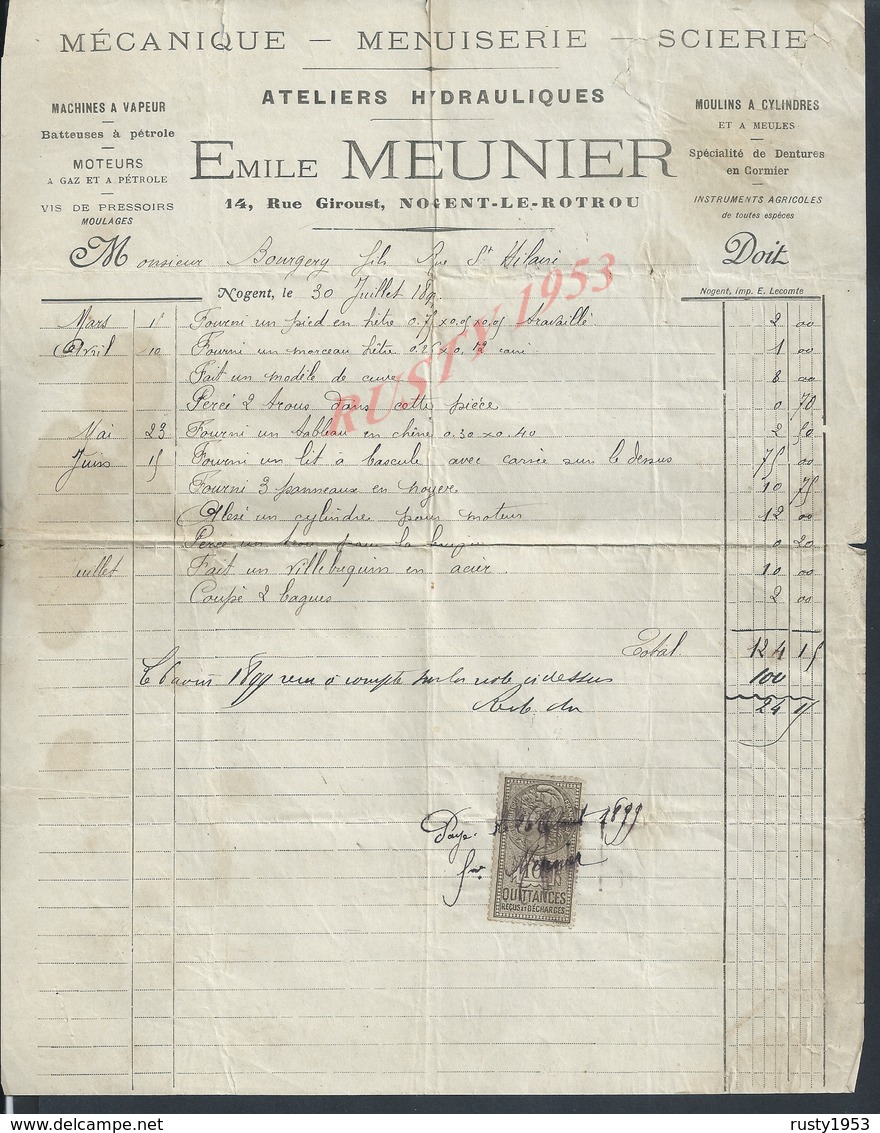 MÉCANIQUE — MENUISERIE — SCIERIE
ATELIERS HYDRAULIQUES
MACHINES A VAPEUR
Batteuses à pétrole
MOTEURS
A GAZ ET A PÉTROLE
VIS DE PRESSOIRS
MOULAGES
EMILE MEUNIER
14, Rue Giroust, NOGENT-LE-ROTROU
MOULINS A CYLINDRES
ET A MEULES
Spécialité de Dentures
en Cormier
INSTRUMENTS AGRICOLES
de toutes espèces
Monsieur Bourgery fils Rue St Hilaire Doit
Nogent, le 30 Juillet 189
Nogent, imp. E. Lecomte
Mars 1r Fourni un pied en hêtre 0.75 x 0.05 x 0.05 travaillé 2 00
Avril 10 Fourni un morceau hêtre 0.25 x 0.12 1 00
Fait un modèle de cuve 8 00
Percé 2 trous dans cette pièce 0 70
Mai 23 Fourni un tableau en chêne 0.30 x 0.40 2 50
Juin 15 Fourni un lit à bascule avec carrée sur le dessus 75 00
Fourni 3 panneaux en noyer 10 75
Alesé un cylindre pour moteur 12 00
Percé un trou pour la 0 20
Juillet Fait un villebrequin en acier. 10 00
Coupé 2 bagues 2 00
Total 124 15
1899 reçu à compte sur la note ci dessus 100
Reste du 24 15
Payé 1899
Meunier
QUITTANCES
REÇUS ET DÉCHARGES
RUSTY 1953
www.delcampe.net
rusty1953